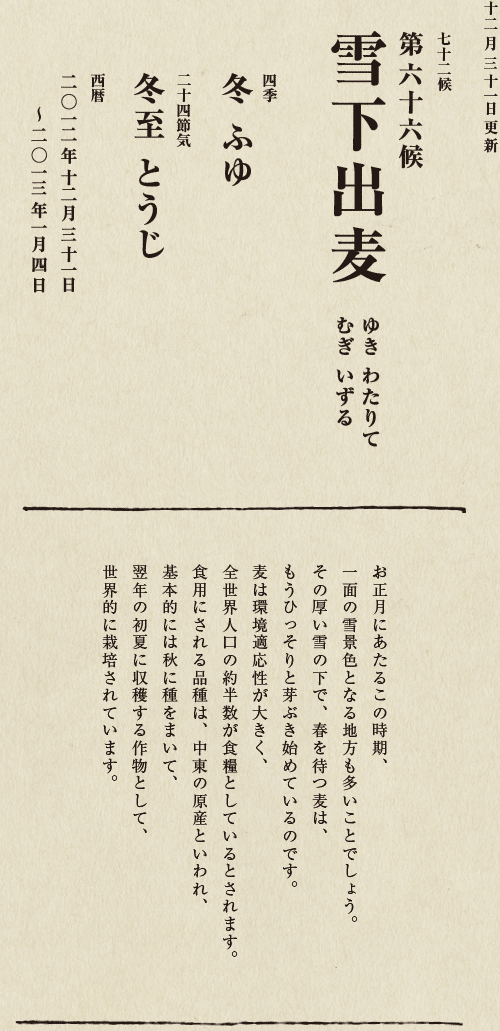 十二月三十一日更新
七十二候
第六十六候
雪下出麦
ゆき わたりて
むぎ いずる
四季
冬 ふゆ
二十四節気
冬至 とうじ
西暦
二〇一二年十二月三十一日
〜二〇一三年一月四日
お正月にあたるこの時期、
一面の雪景色となる地方も多いことでしょう。
その厚い雪の下で、春を待つ麦は、
もうひっそりと芽ぶき始めているのです。
麦は環境適応性が大きく、
全世界人口の約半数が食糧としているとされます。
食用にされる品種は、中東の原産といわれ、
基本的には秋に種をまいて、
翌年の初夏に収穫する作物として、
世界的に栽培されています。